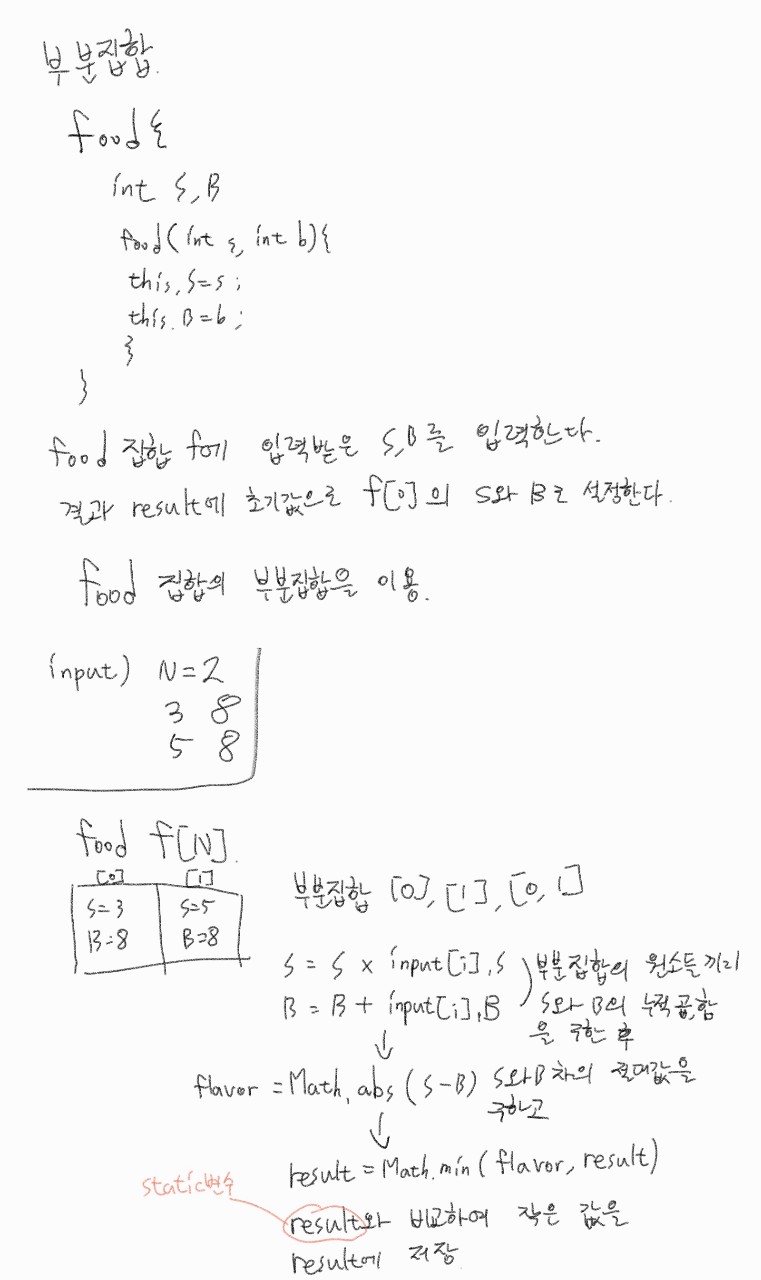 부분집합.
food {
int S, B
food(int s, int b){
this.S=s;
this.B=b;
}
}
food 집합 f에 입력받은 S,B를 입력한다.
결과 result에 초기값으로 f[0]의 S와 B로 설정한다.
food 집합의 부분집합을 이용.
input) N=2
3 8
5 8
food f[N].
[0] [1]
S=3 S=5
B=8 B=8
부분집합 [0], [1], [0, 1]
S = S × input[i].S
B = B + input[i].B
부분집합의 원소들끼리
S와 B의 누적곱,합
을 구한 후
flavor = Math.abs(S-B) S와B 차의 절대값을
구하고
result = Math.min(flavor, result)
static변수
result와 비교하여 작은 값을
result에 저장